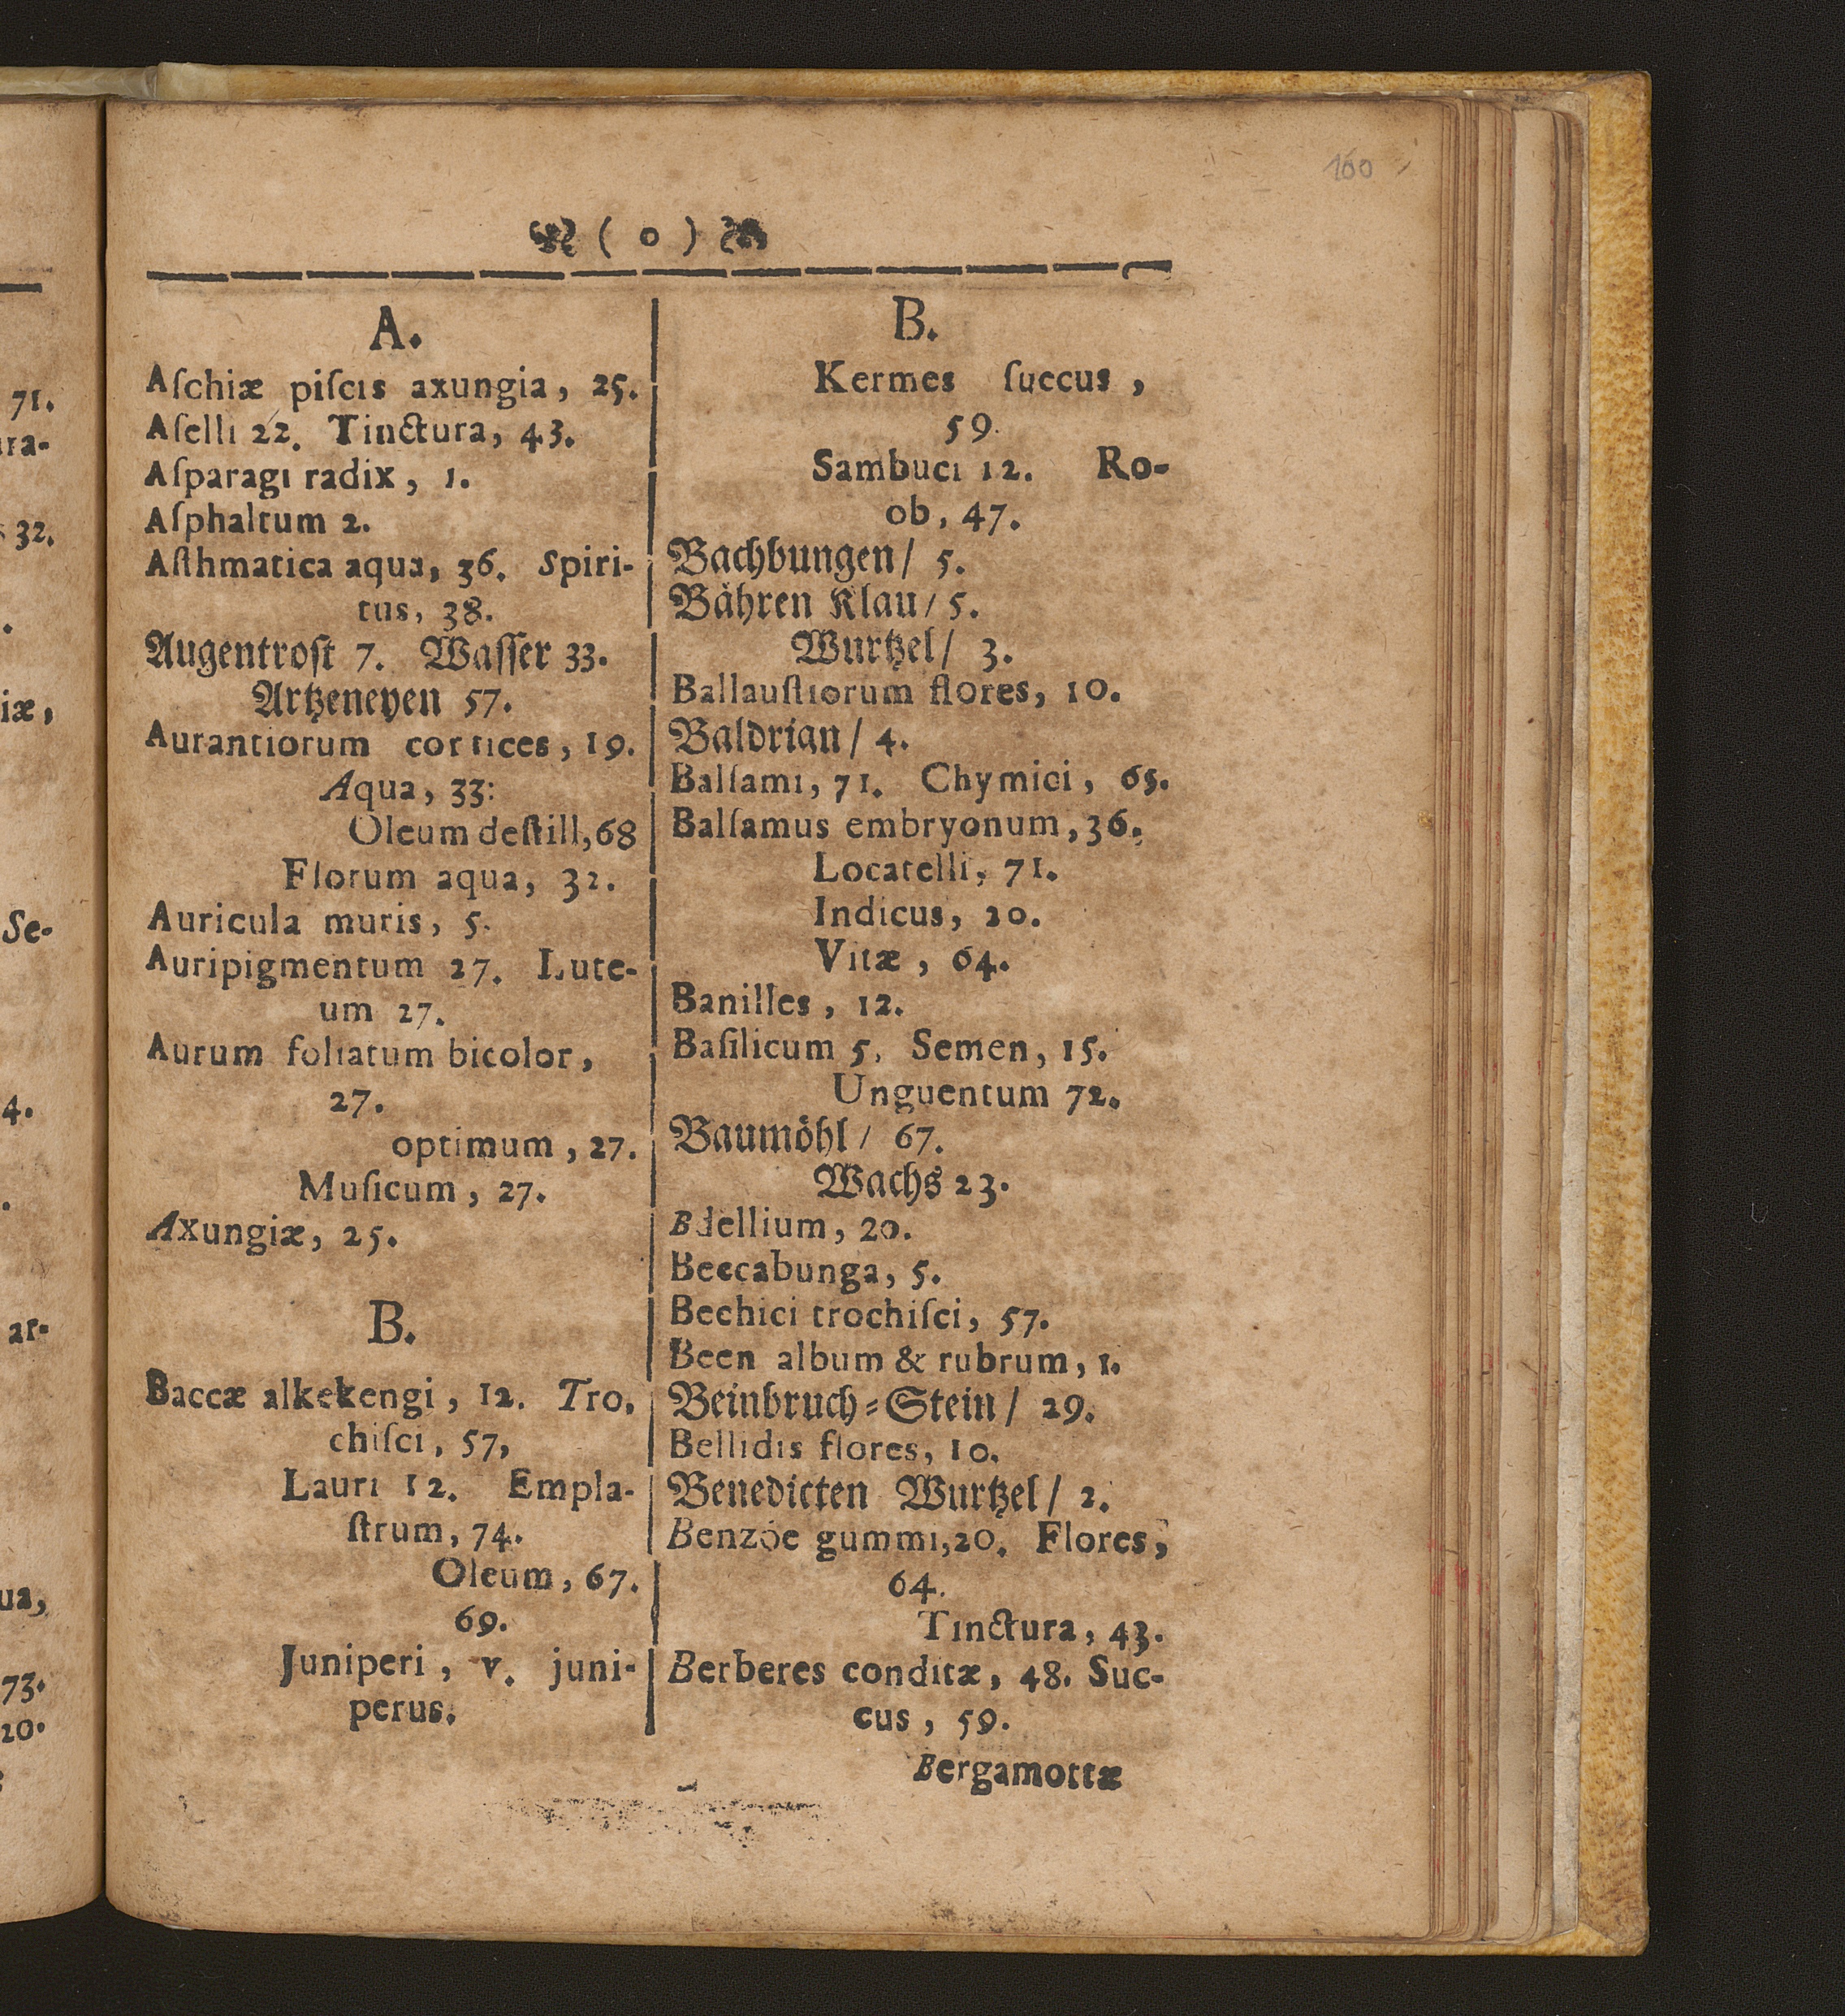 100
( o )
A.
Aſchiæ piſcis axungia, 25.
Aſelli 22. Tinctura, 43.
Aſparagi radix, 1.
Aſphaltum 2.
Aſthmatica aqua, 36. Spiri-
tus, 38.
Augentroſt 7. Waſſer 33.
Artzeneyen 57.
Aurantiorum cortices, 19.
Aqua, 33:
Oleum deſtill, 68
Florum aqua, 32.
Auricula muris, 5.
Auripigmentum 27. Lute-
um 27.
Aurum foliatum bicolor,
27.
optimum, 27.
Muſicum, 27.
Axungiæ, 25.
B.
Baccæ alkekengi, 12. Tro.
chiſci, 57,
Lauri 12. Empla-
ſtrum, 74.
Oleum, 67.
69.
Juniperi, v. juni-
perus.
B.
Kermes ſuccus,
59.
Sambuci 12. Ro-
ob, 47.
Bachbungen/ 5.
Bähren Klau/ 5.
Wurtzel/ 3.
Ballauſtiorum flores, 10.
Baldrian/ 4.
Balſami, 71. Chymici, 65.
Balſamus embryonum, 36.
Locatelli, 71.
Indicus, 20.
Vitæ, 64.
Banilles, 12.
Baſilicum 5, Semen, 15.
Unguentum 72.
Baumöhl/ 67.
Wachs 23.
Bdellium, 20.
Beccabunga, 5.
Bechici trochiſci, 57.
Been album & rubrum, 1.
Beinbruch-Stein/ 29.
Bellidis flores, 10.
Benedicten Wurtzel/ 2.
Benzöe gummi, 20. Flores,
64.
Tinctura, 43.
Berberes conditæ, 48. Suc-
cus, 59.
Bergamottæ
71.
ura-
32.
iæ,
Se-
4.
ar-
ua,
73.
20.